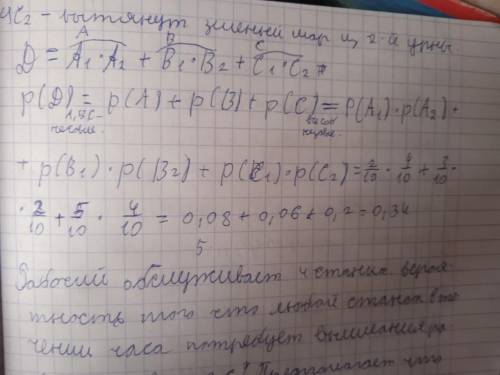 С₂ - вытянут зеленый шар из 2-й урны
A B C
D = A₁·A₂ + B₁·B₂ + C₁·C₂
p(D) = p(A) + p(B) + p(C) = P(A₁)·p(A₂) +
+ p(B₁)·p(B₂) + p(C₁)·p(C₂) = 2/10 · 4/10 + 3/10 ·
· 2/10 + 5/10 · 4/10 = 0,08 + 0,06 + 0,2 = 0,34
5
Рабочий обслуживает 4 станка вероя-
тность того что любой станок в те
чении часа потребует внимания ра
Предполагает что